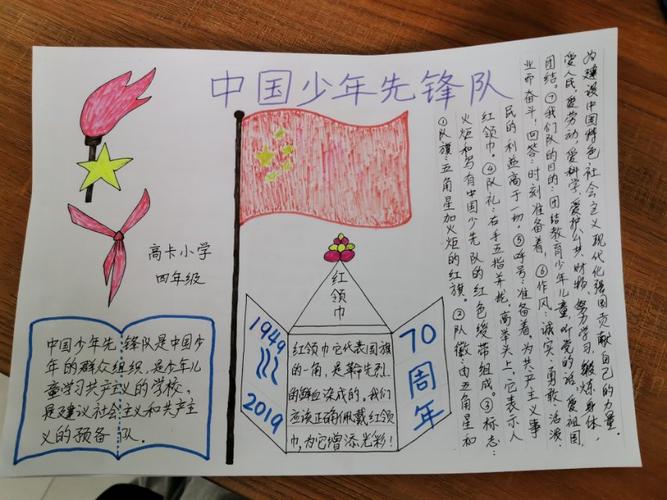 中国少年先锋队
高卡小学
四年级
中国少年先锋队是中国少
年的群众组织,是少年儿
童学习共产主义的学校,
是建议社会主义和共产主
义的预备队。
红领巾
1949
2019
红领巾它代表国旗
的一角,是革命先烈
的鲜血染成的。我们
应该正确佩戴红领
巾,为它增添光彩!
70周年
①队旗:五角星加火炬的红旗。②队徽:由五角星和
火炬和写有中国少先队的红色绶带组成。③标志:
红领巾。④队礼:右手五指并拢,高举头上,它表示人
民的利益高于一切。⑤呼号:准备着,为共产主义事
业而奋斗,回答:时刻准备着。⑥作风:诚实、勇敢、活泼、
团结。⑦我们队的目的:团结教育少年儿童,听党的话,爱祖国,
爱人民,爱劳动,爱科学,爱护公共财物,努力学习,锻炼身体,
为建设中国特色社会主义现代化强国贡献自己的力量。